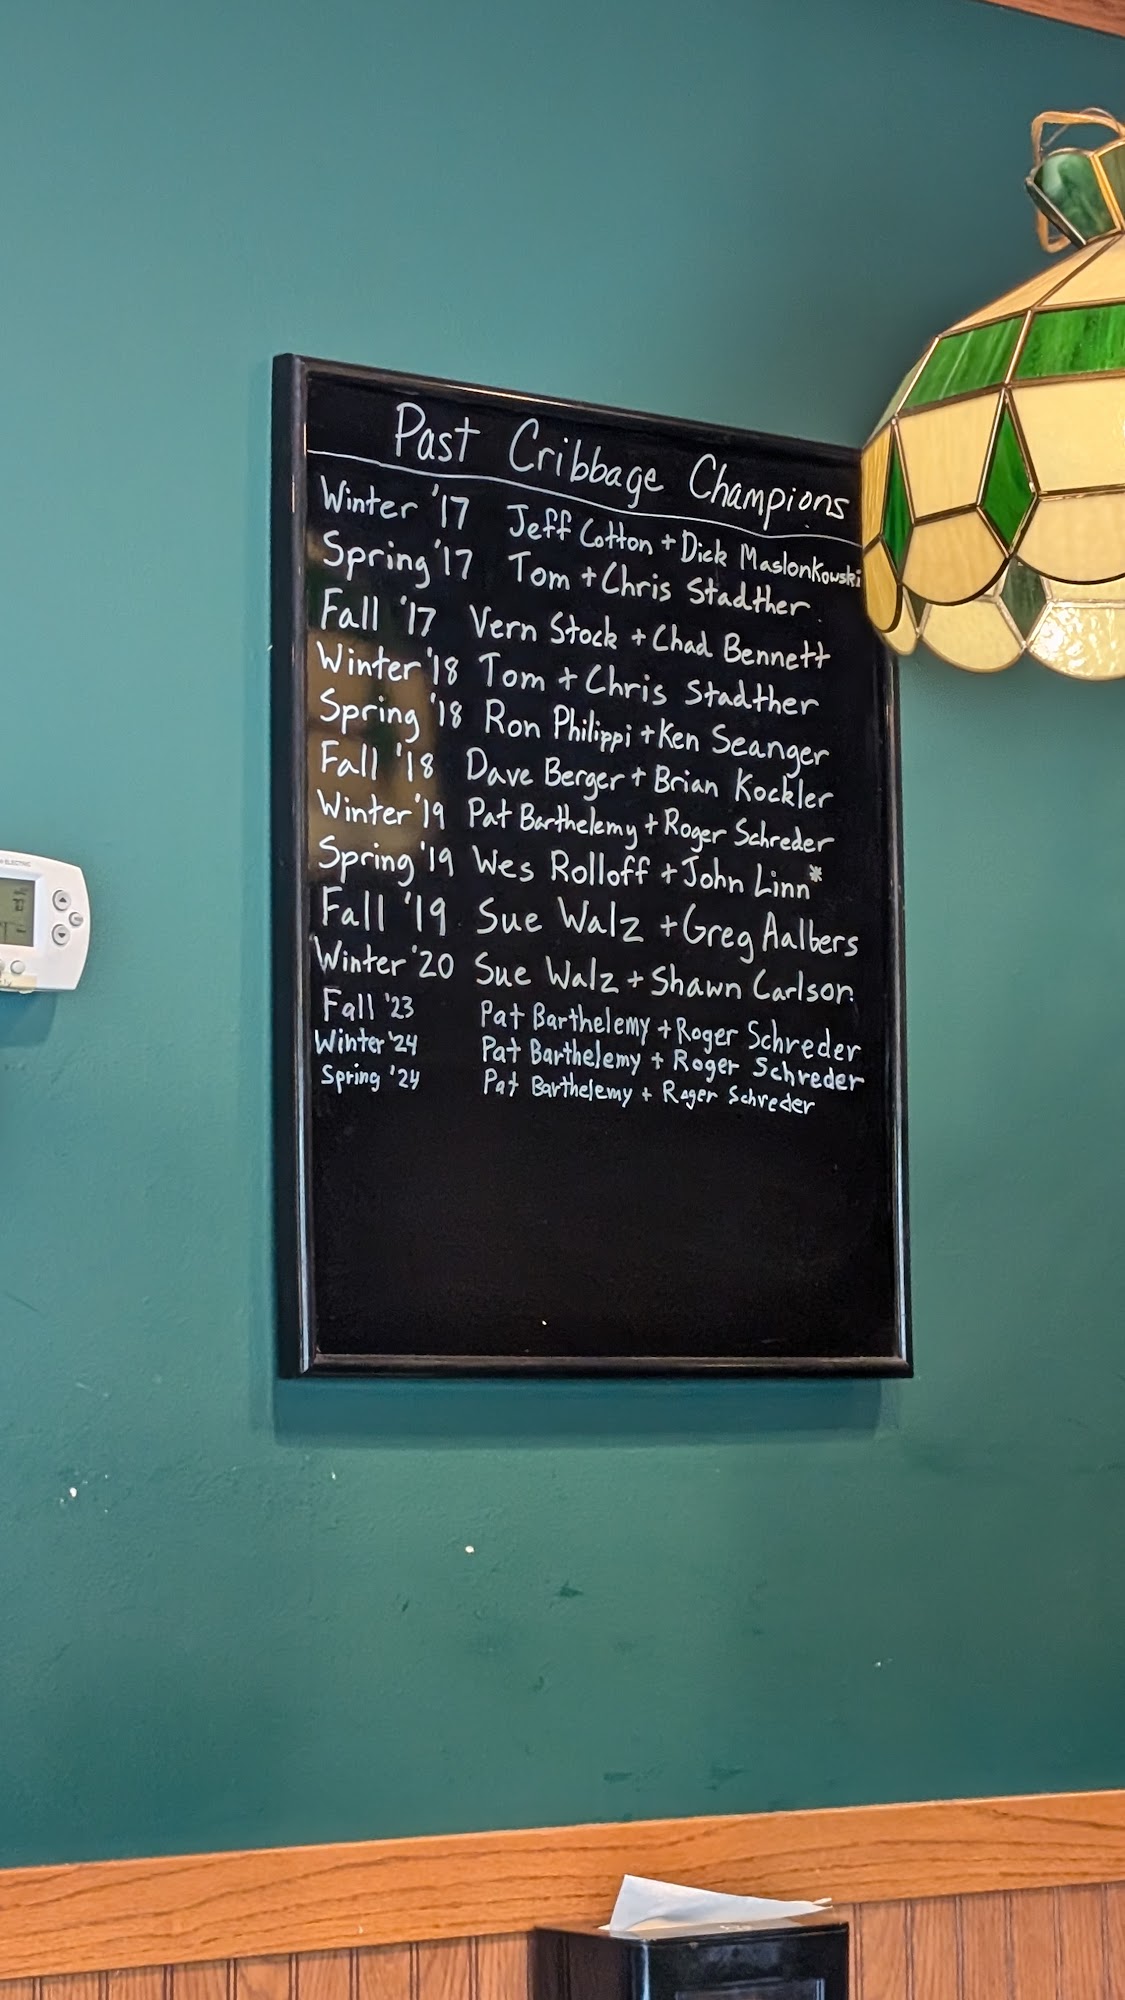 Past Cribbage Champions
Winter '17 Jeff Cotton + Dick Maslonkowski
Spring '17 Tom + Chris Stadther
Fall '17 Vern Stock + Chad Bennett
Winter '18 Tom + Chris Stadther
Spring '18 Ron Philippi + Ken Seanger
Fall '18 Dave Berger + Brian Kockler
Winter '19 Pat Barthelemy + Roger Schreder
Spring '19 Wes Rolloff + John Linn*
Fall '19 Sue Walz + Greg Aalbers
Winter '20 Sue Walz + Shawn Carlson
Fall '23 Pat Barthelemy + Roger Schreder
Winter '24 Pat Barthelemy + Roger Schreder
Spring '24 Pat Barthelemy + Roger Schreder